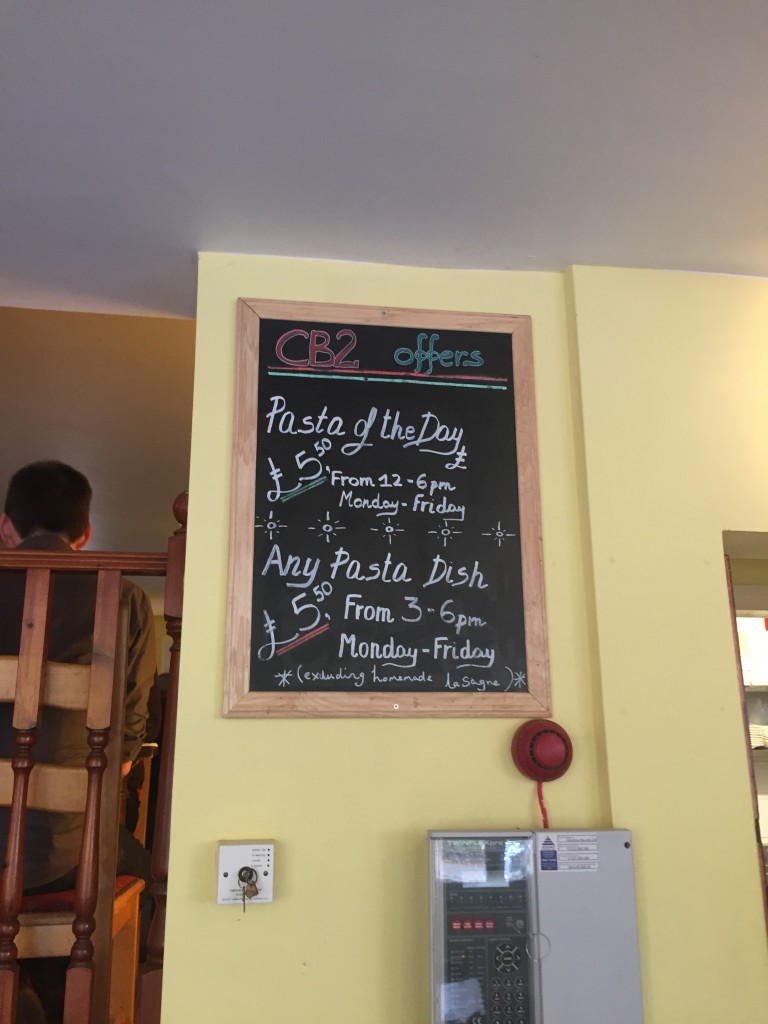 CB2 offers
Pasta of the Day
£5.50 From 12-6pm
Monday-Friday
Any Pasta Dish
£5.50 From 3-6pm
Monday-Friday
*(excluding homemade lasagne)*